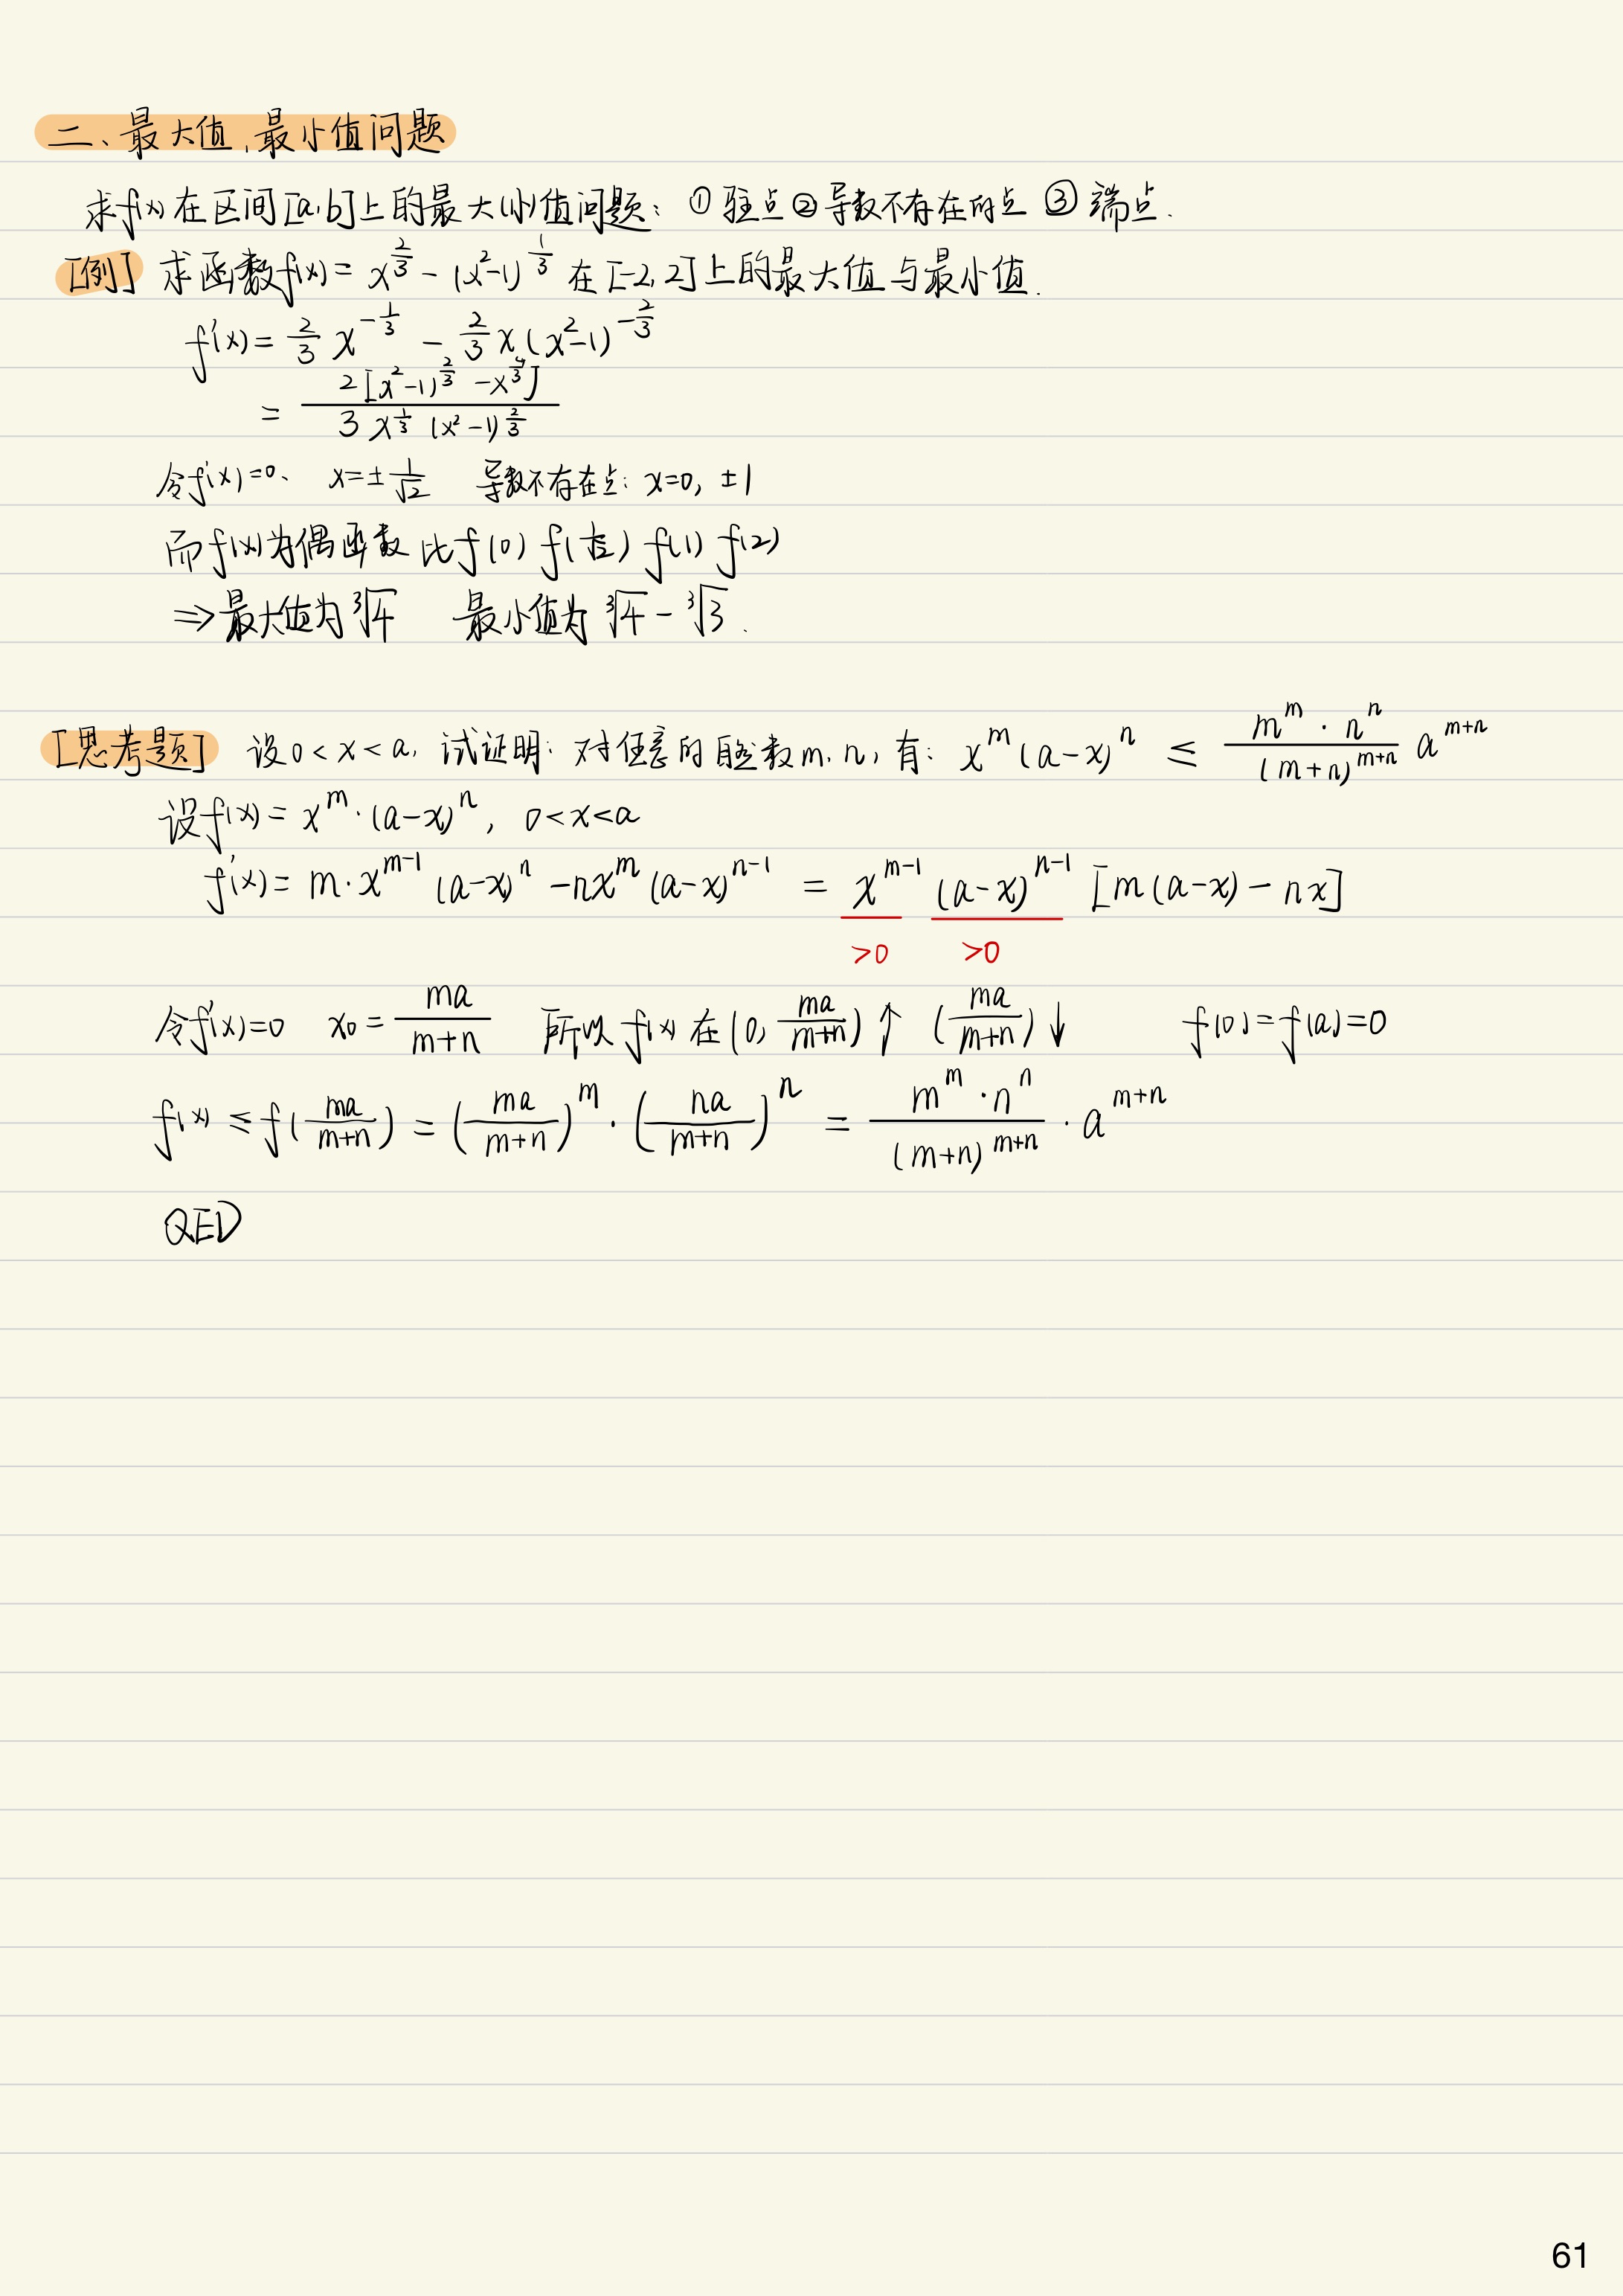 二、最大值,最小值问题
求f(x)在区间[a,b]上的最大(小)值问题: ① 驻点 ② 导数不存在的点 ③ 端点.
[例] 求函数f(x) = x^{2/3} - (x²-1)^{1/3} 在[-2,2]上的最大值与最小值.
f'(x) = 2/3 x^{-1/3} - 2/3 x(x²-1)^{-2/3}
= 2[x²-1)^{2/3} - x^{4/3}] / 3x^{1/3} (x²-1)^{2/3}
令f'(x)=0、 x=±1/√2 导数不存在点: x=0, ±1
而f(x)为偶函数 比f(0) f(1/√2) f(1) f(2)
⇒最大值为 ³√4 最小值为 ³√4 - ³√3.
[思考题] 设0<x<a, 试证明: 对任意的自然数m,n, 有: x^m(a-x)^n ≤ m^m·n^n / (m+n)^{m+n} a^{m+n}
设f(x) = x^m·(a-x)^n, 0<x<a
f'(x) = m·x^{m-1} (a-x)^n - nx^m (a-x)^{n-1} = x^{m-1} (a-x)^{n-1} [m(a-x) - nx]
>0 >0
令f'(x)=0 x₀ = ma/(m+n) 所以 f(x) 在(0, ma/(m+n))↑ (ma/(m+n))↓ f(0)=f(a)=0
f(x) ≤ f(ma/(m+n)) = (ma/(m+n))^m · (na/(m+n))^n = m^m·n^n / (m+n)^{m+n} · a^{m+n}
QED
61